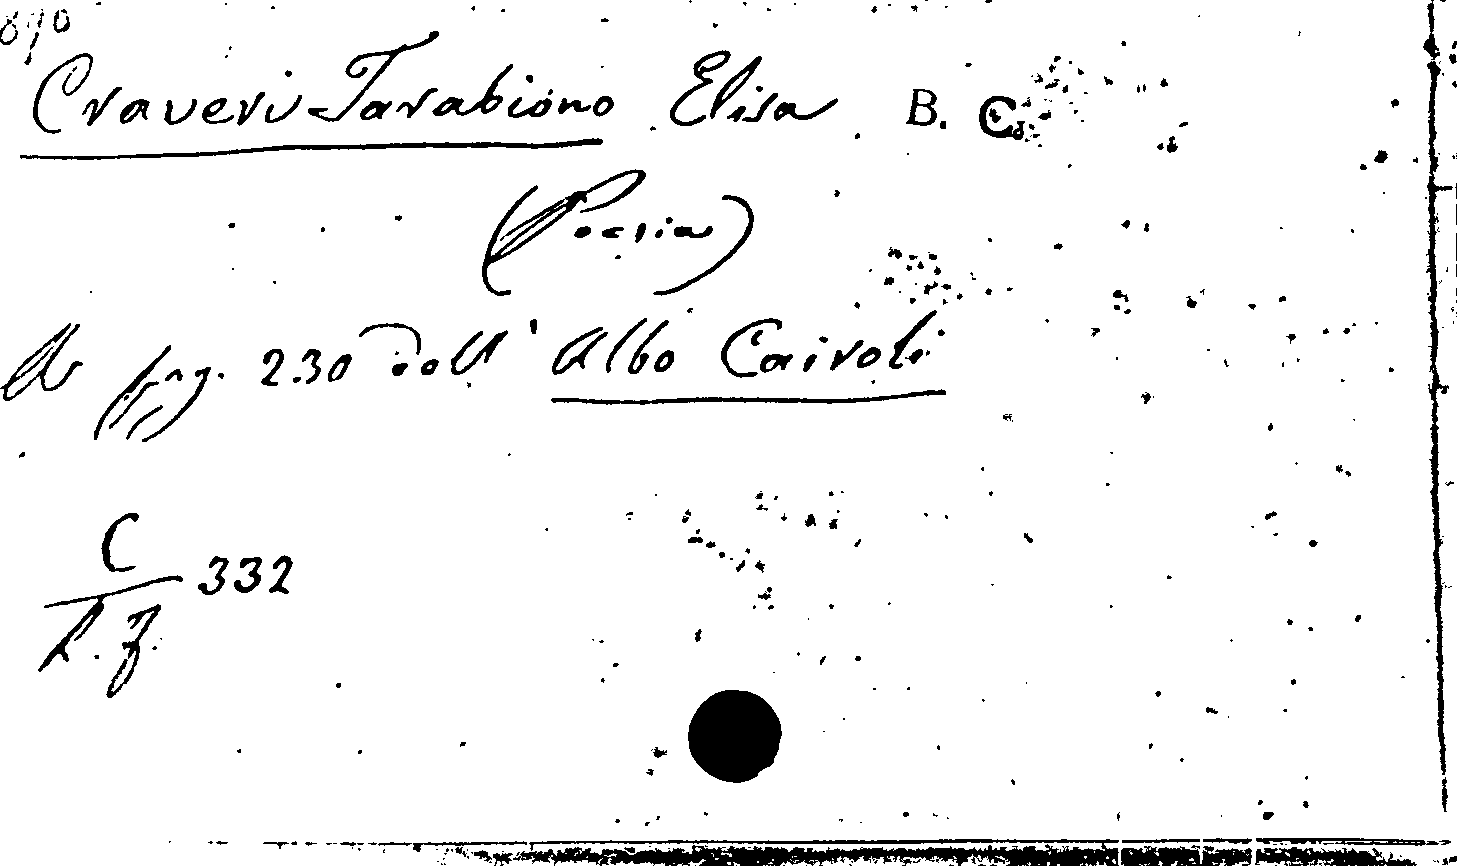 890
Craveri-Tarabiono Elisa B. C.
(Poesia)
A pag. 230 dell' Albo Cairoli
C
332